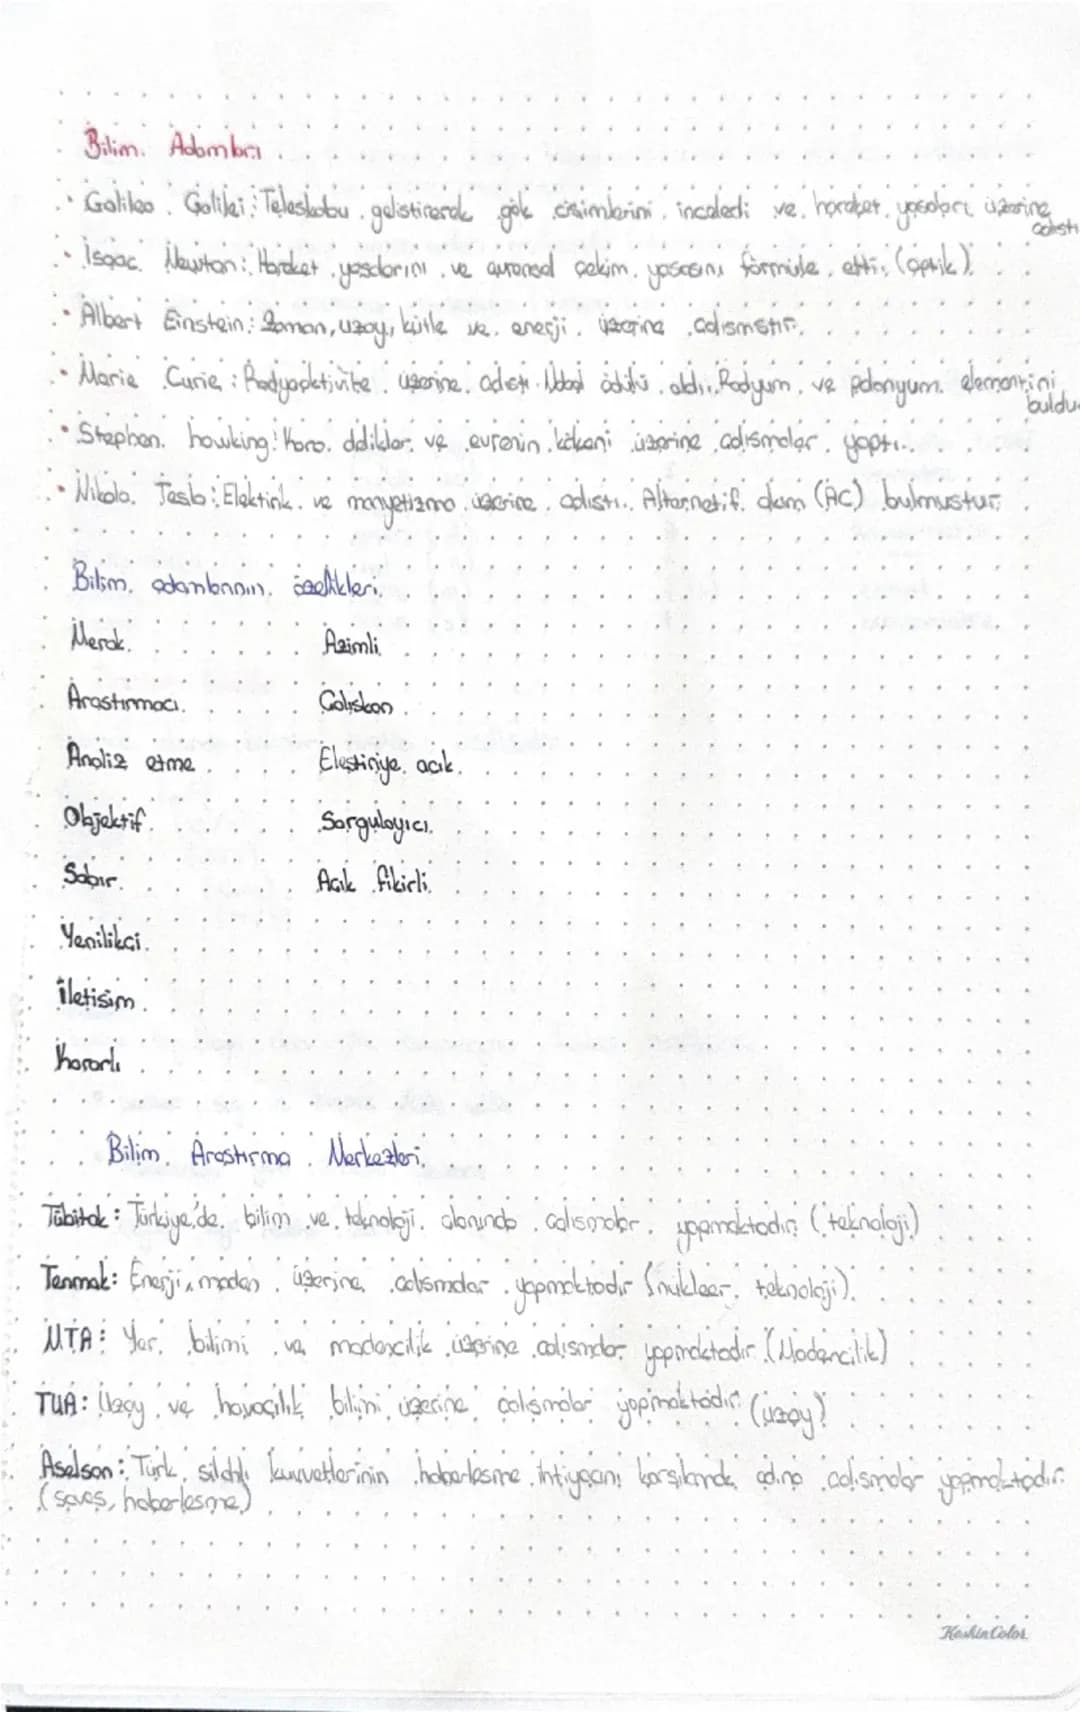 Bilim Adamları
• Galileo Galilei: Teleskobu geliştirerek gök cisimlerini inceledi ve hareket yasaları üzerine çalıştı
• Isaac Newton: Hareket yasalarını ve evrensel çekim yasasını formüle etti. (optik)
• Albert Einstein: Zaman, uzay, kütle ve enerji üzerine çalışmıştır.
• Marie Curie: Radyoaktivite üzerine çalıştı. Nobel ödülü aldı. Radyum ve polonyum elementini buldu
• Stephan howking: Kara delikler ve evrenin kökeni üzerine çalışmalar yaptı.
• Nikola Tesla: Elektirik ve manyetizma üzerine çalıştı. Alternatif akım (AC) bulmuştur.
Bilim adamlarının özellikleri
Merak Azimli
Araştırmacı Çalışkan
Analiz etme Eleştiriye açık
Objektif Sorgulayıcı
Sabır Açık fikirli
Yenilikçi
İletişim
Kararlı
Bilim Araştırma Merkezleri
Tübitak: Türkiye'de bilim ve teknoloji alanında çalışmalar yapmaktadır (teknoloji)
Tenmak: Enerji, maden üzerine çalışmalar yapmaktadır (nükleer teknoloji)
MTA: Yer bilimi ve madencilik üzerine çalışmalar yapmaktadır (Madencilik)
TUA: Uzay ve havacılık bilimi üzerine çalışmalar yapmaktadır (uzay)
Aselsan: Türk silahlı kuvvetlerinin haberleşme ihtiyacını karşılamak adına çalışmalar yapmaktadır.
(savaş, haberleşme)
KeskinColor